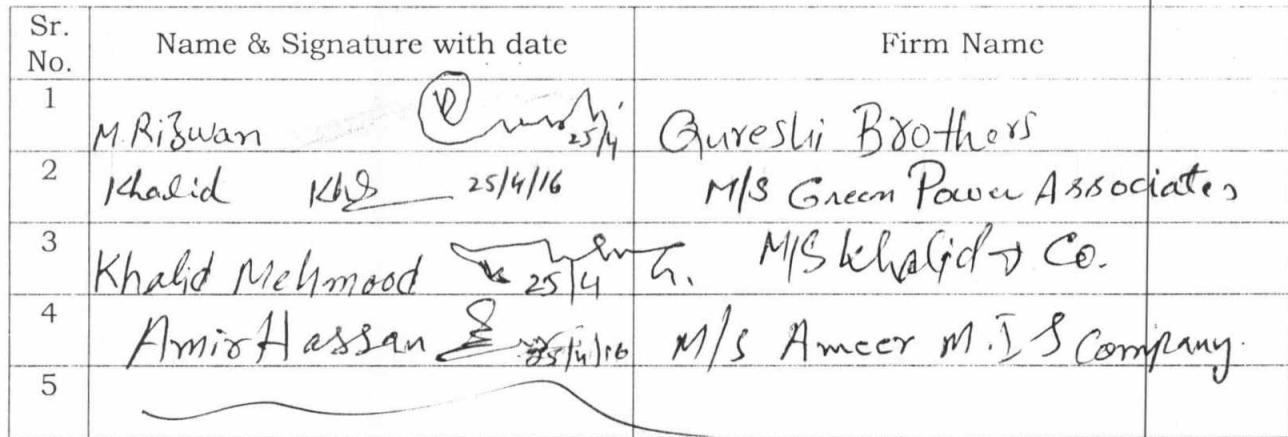 Sr. No. Name & Signature with date Firm Name
1 M. Rizwan 25/4 Qureshi Brothers
2 Khalid 25/4/16 M/S Green Power Associates
3 Khalid Mehmood 25/4 M/S Khalid & Co.
4 Amir Hassan 25/4/16 M/S Ameer M.I S Company.
5